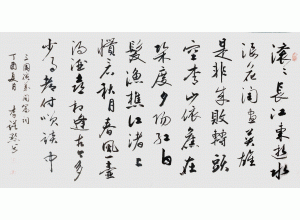 滚滚长江东逝水
浪花淘尽英雄
是非成败转头
空青山依旧在
几度夕阳红白
发渔樵江渚上
惯看秋月春风一壶
浊酒喜相逢古今多
少事都付笑谈中
三国演义开篇词
丁酉夏月